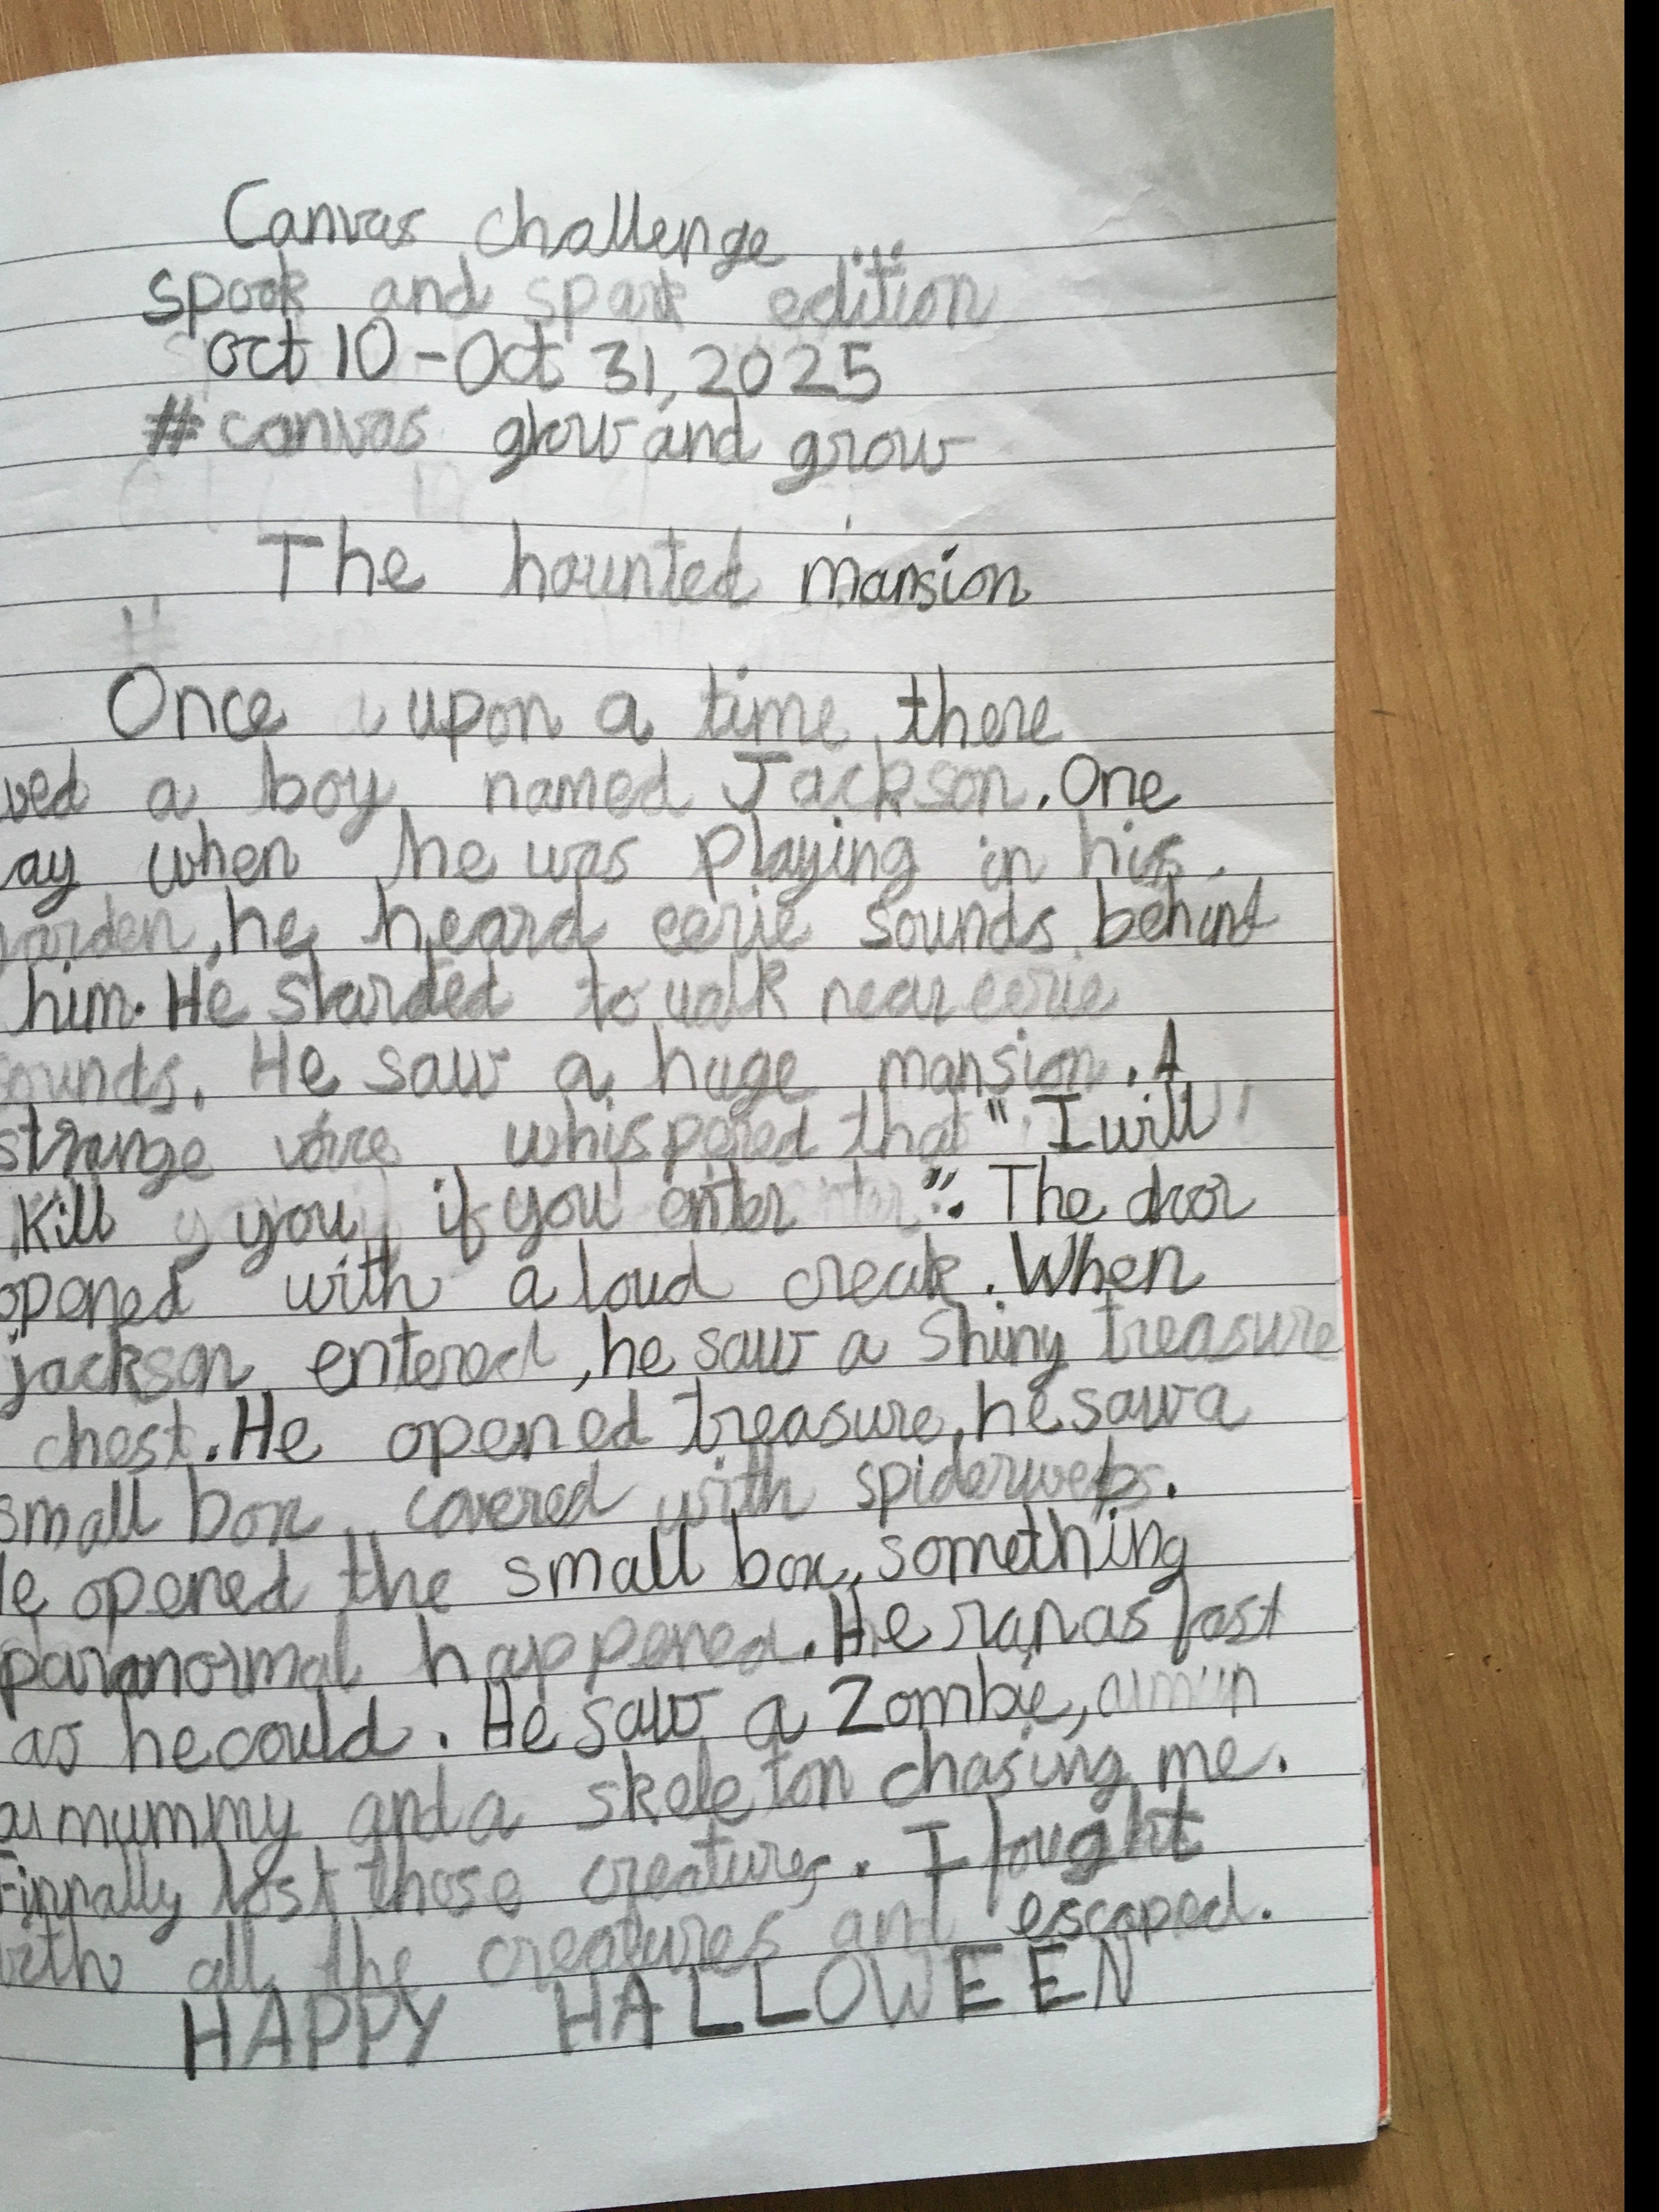 Canvas challenge
spook and spark edition
oct 10 - Oct 31, 2025
# canvas glow and grow
The haunted mansion
Once upon a time, there
ved a boy named Jackson. One
ay when he was playing in his
garden, he heard eerie sounds behind
him. He starded to walk near eerie
sounds. He saw a huge mansion. A
strange voice whispered that "I will
Kill you if you enter ". The door
opened with a loud creak. When
jackson entered, he saw a Shiny treasure
chest. He opened treasure, he saw a
small box covered with spiderwebs.
He opened the small box, something
paranormal happened. He ran as fast
as he could. He saw a Zombie,
a mummy and a skeleton chasing me.
Finnally lost those creatures. I fought
with all the creatures and escaped.
HAPPY HALLOWEEN